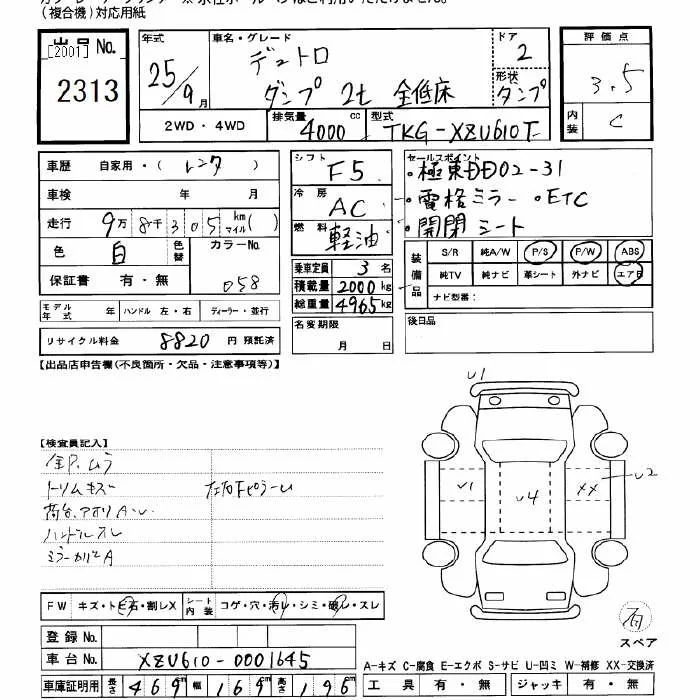 (複合機)対応用紙
出品No.
[2001]
2313
年式
25/9月
車名・グレード
デュトロ
ダンプ 2t 全低床
ドア
2
形状
ダンプ
評価点
3.5
内装
C
2WD・4WD
排気量
4000 cc
型式
TKG-XZU610T
車歴 自家用・(レンタ)
車検 年 月
走行 9万8千305 km マイル( )
色 白 色替 カラーNo.
058
保証書 有・無
モデル年式 年 ハンドル 左・右 ディーラー・並行
リサイクル料金 8820 円 預託済
シフト F5
冷房 AC
燃料 軽油
乗車定員 3名
積載量 2000kg
総重量 4965kg
名変期限
月 日
セールスポイント
・極東DD02-31
・電格ミラー ・ETC
・開閉シート
装備品
S/R 純A/W P/S P/W ABS
純TV 純ナビ 革シート 外ナビ エアB
ナビ型番:
後日品
【出品店申告欄(不良箇所・欠品・注意事項等)】
【検査員記入】
全P.ムラ
トリムキズ
荷台、アオリA、U
ハンドルスレ
ミラーカバーA
U1
U1
U4
XX
U2
FW キズ・トビ石・割レX シート内装 コゲ・穴・汚レ・シミ・破レ・スレ
登録No.
車台No. XZU610-0001645
車庫証明用 長さ 469cm 幅 169cm 高さ 196cm
有
スペア
A-キズ C-腐食 E-エクボ S-サビ U-凹ミ W-補修 XX-交換済
工具 有・無 ジャッキ 有・無